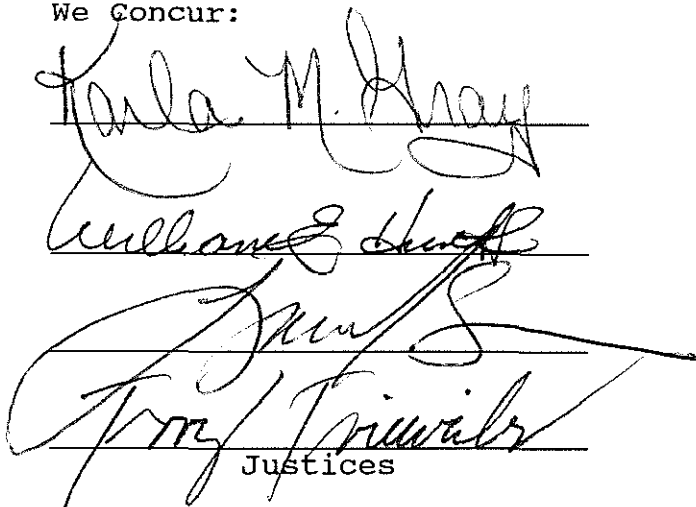 We Concur:
Karla M. Gray
William E Hunt
Terry Trieweiler
Justices